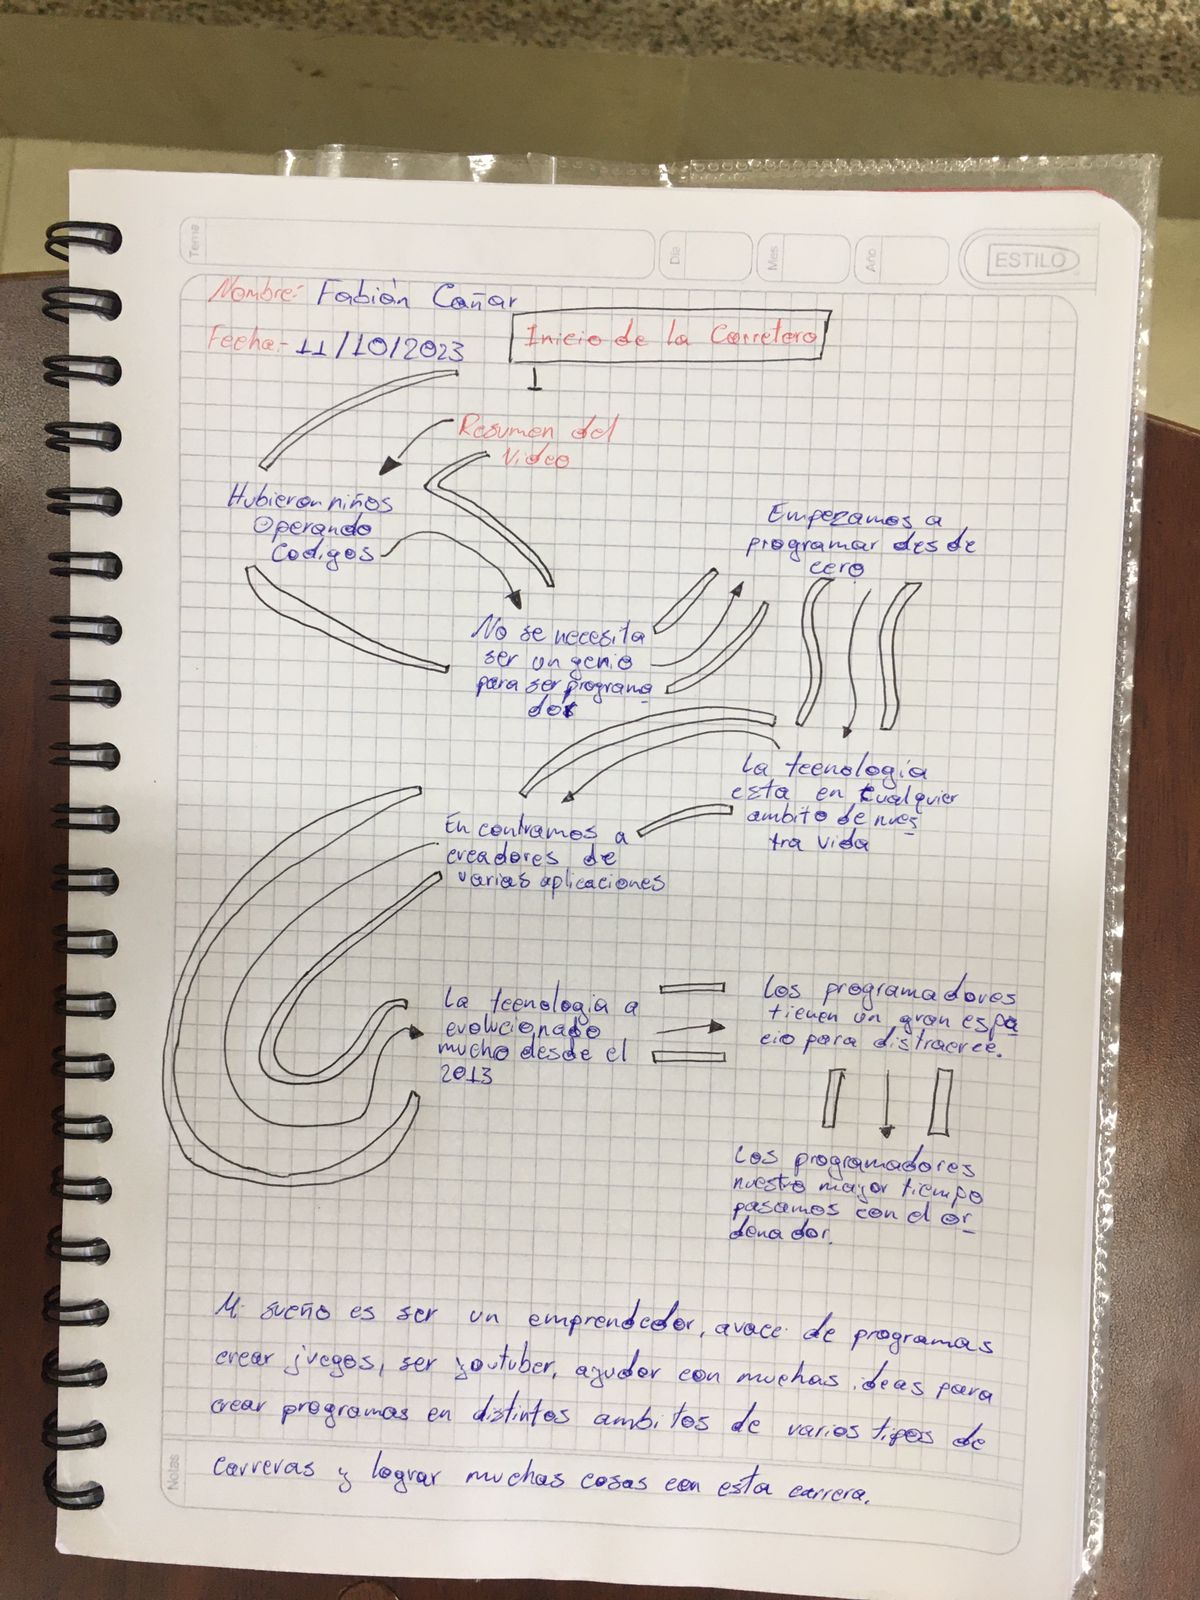 Tema
Dia
Mes
Año
ESTILO
Nombre: Fabián Cañar
Fecha:- 11/10/2023
Inicio de la Carretero
Resumen del
Video
Hubieron niños
Operando
Codigos
No se necesita
ser un genio
para ser programa
dor
Empezamos a
programar desde
cero
La tecnologia
esta en cualquier
ambito de nues
tra vida
Encontramos a
creadores de
varias aplicaciones
La tecnologia a
evolucionado
mucho desde el
2013
Los programadores
tienen un gran espa
cio para distraerce.
Los programadores
nuestro mayor tiempo
pasamos con el or
denador.
Mi sueño es ser un emprendedor, de programas
crear juegos, ser youtuber, ayudar con muchas ideas para
crear programas en distintos ambitos de varios tipos de
carreras y lograr muchas cosas con esta carrera.
Notas